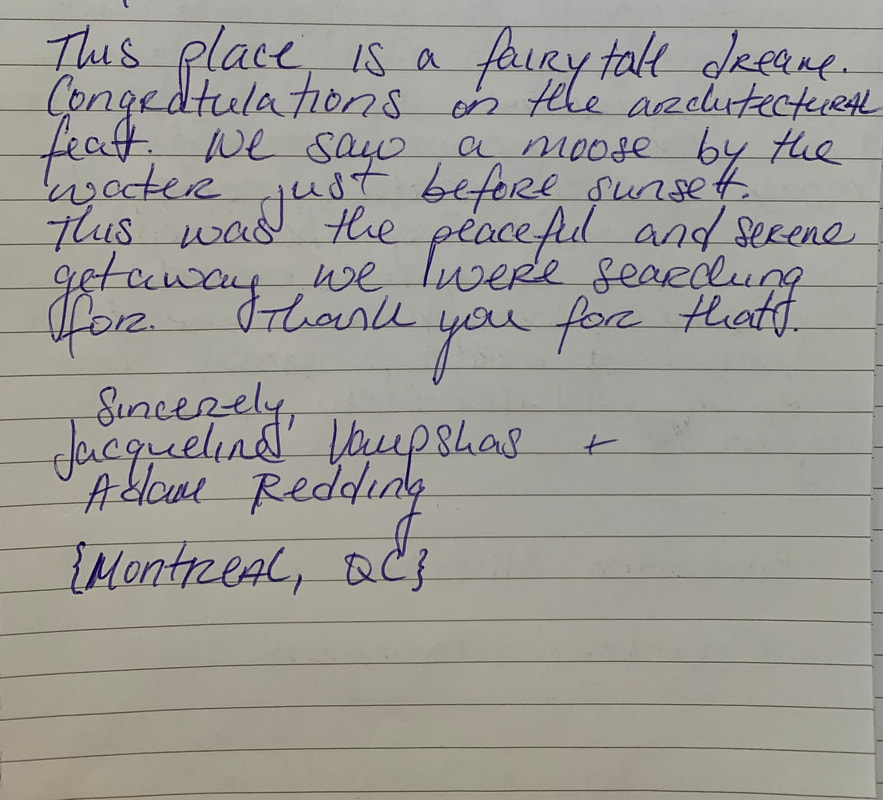 This place is a fairytale dream.
Congratulations on the architectural
feat. We saw a moose by the
water just before sunset.
This was the peaceful and serene
getaway we were searching
for. Thank you for that.
Sincerely,
Jacqueline Vampshas +
Adam Redding
{Montreal, QC}